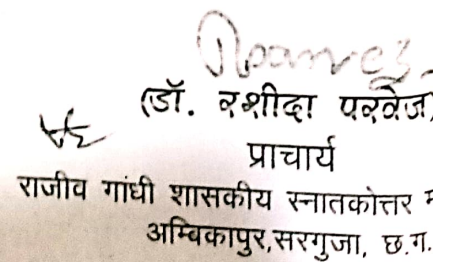 (डॉ. रशीदा परवेज)
प्राचार्य
राजीव गांधी शासकीय स्नातकोत्तर म
अम्बिकापुर,सरगुजा, छ.ग.